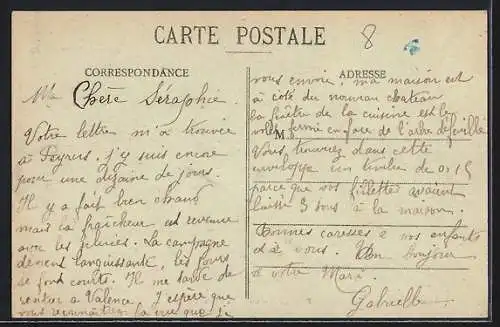 CARTE POSTALE
8
CORRESPONDANCE
ADRESSE
M
Ma Chère Séraphie.
Votre lettre m'a trouvée
à Peyrus, j'y suis encore
pour une dizaine de jours.
Il y a fait bien chaud
mais la fraîcheur est revenue
avec les pluies. La campagne
devient languissante, les jours
se font courts. Il me tarde de
rentrer à Valence. J'espère que
vous reconnaîtrez la vue que je
vous envoie, ma maison est
à côté du nouveau chateau
la fenêtre de la cuisine est le
volet fermé en face de l'arbre
Vous trouverez dans cette
enveloppe un timbre de 0.15
parce que vos fillettes avaient
laissé 3 sous à la maison.
Bonnes caresses à vos enfants
et à vous. Bon bonjour
à votre Mari.
Gabrielle